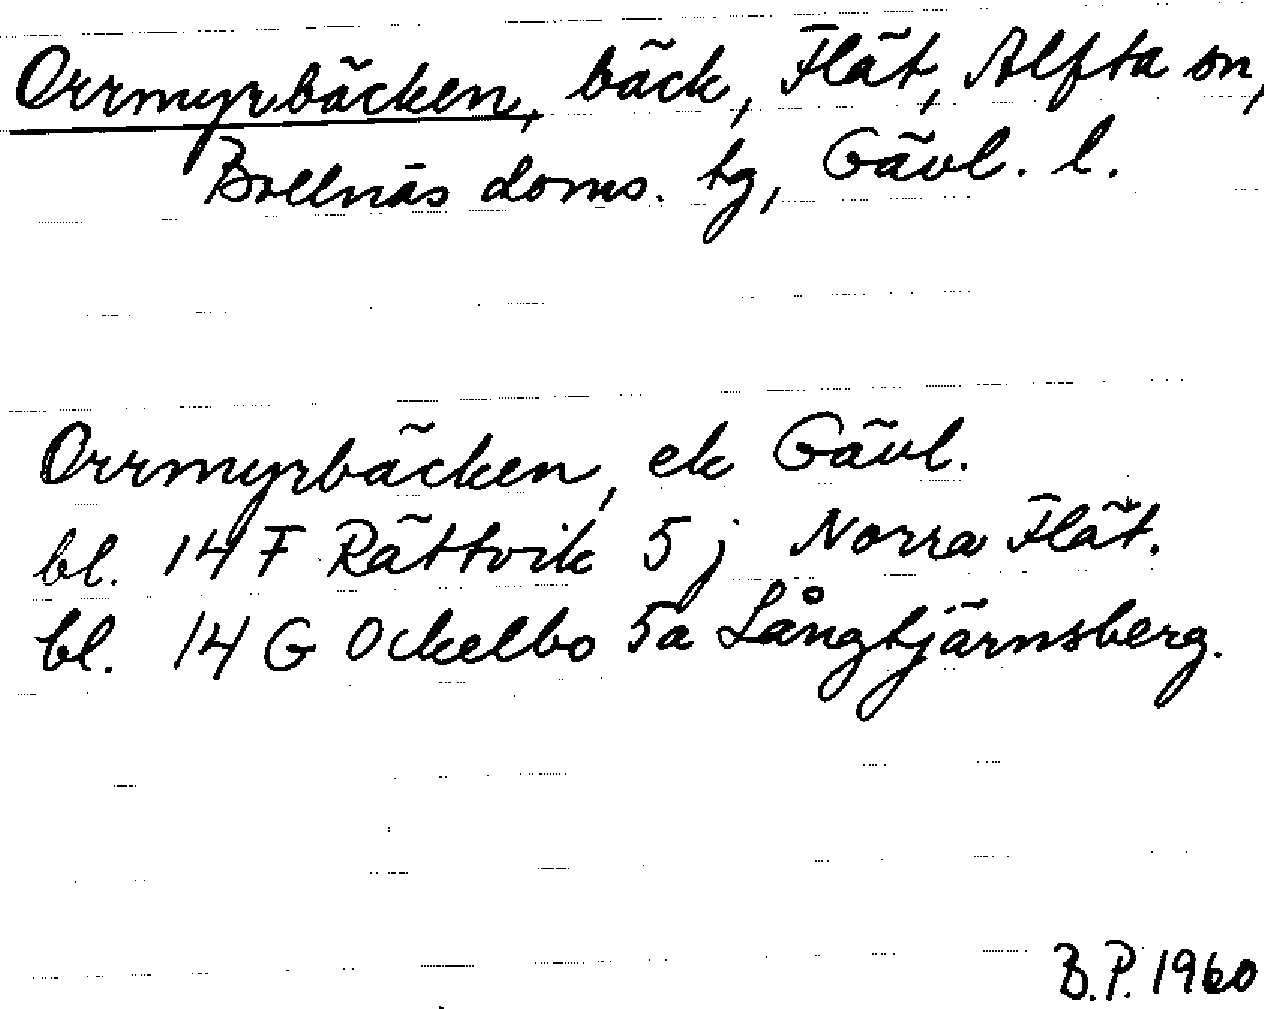 Orrmyrbäcken, bäck, Flät, Alfta sn,
Bollnäs doms. tg, Gävl. l.
Orrmyrbäcken, ek Gävl.
bl. 14 F Rättvik 5 j Norra Flät.
bl. 14 G Ockelbo 5a Långtjärnsberg.
B.P. 1960